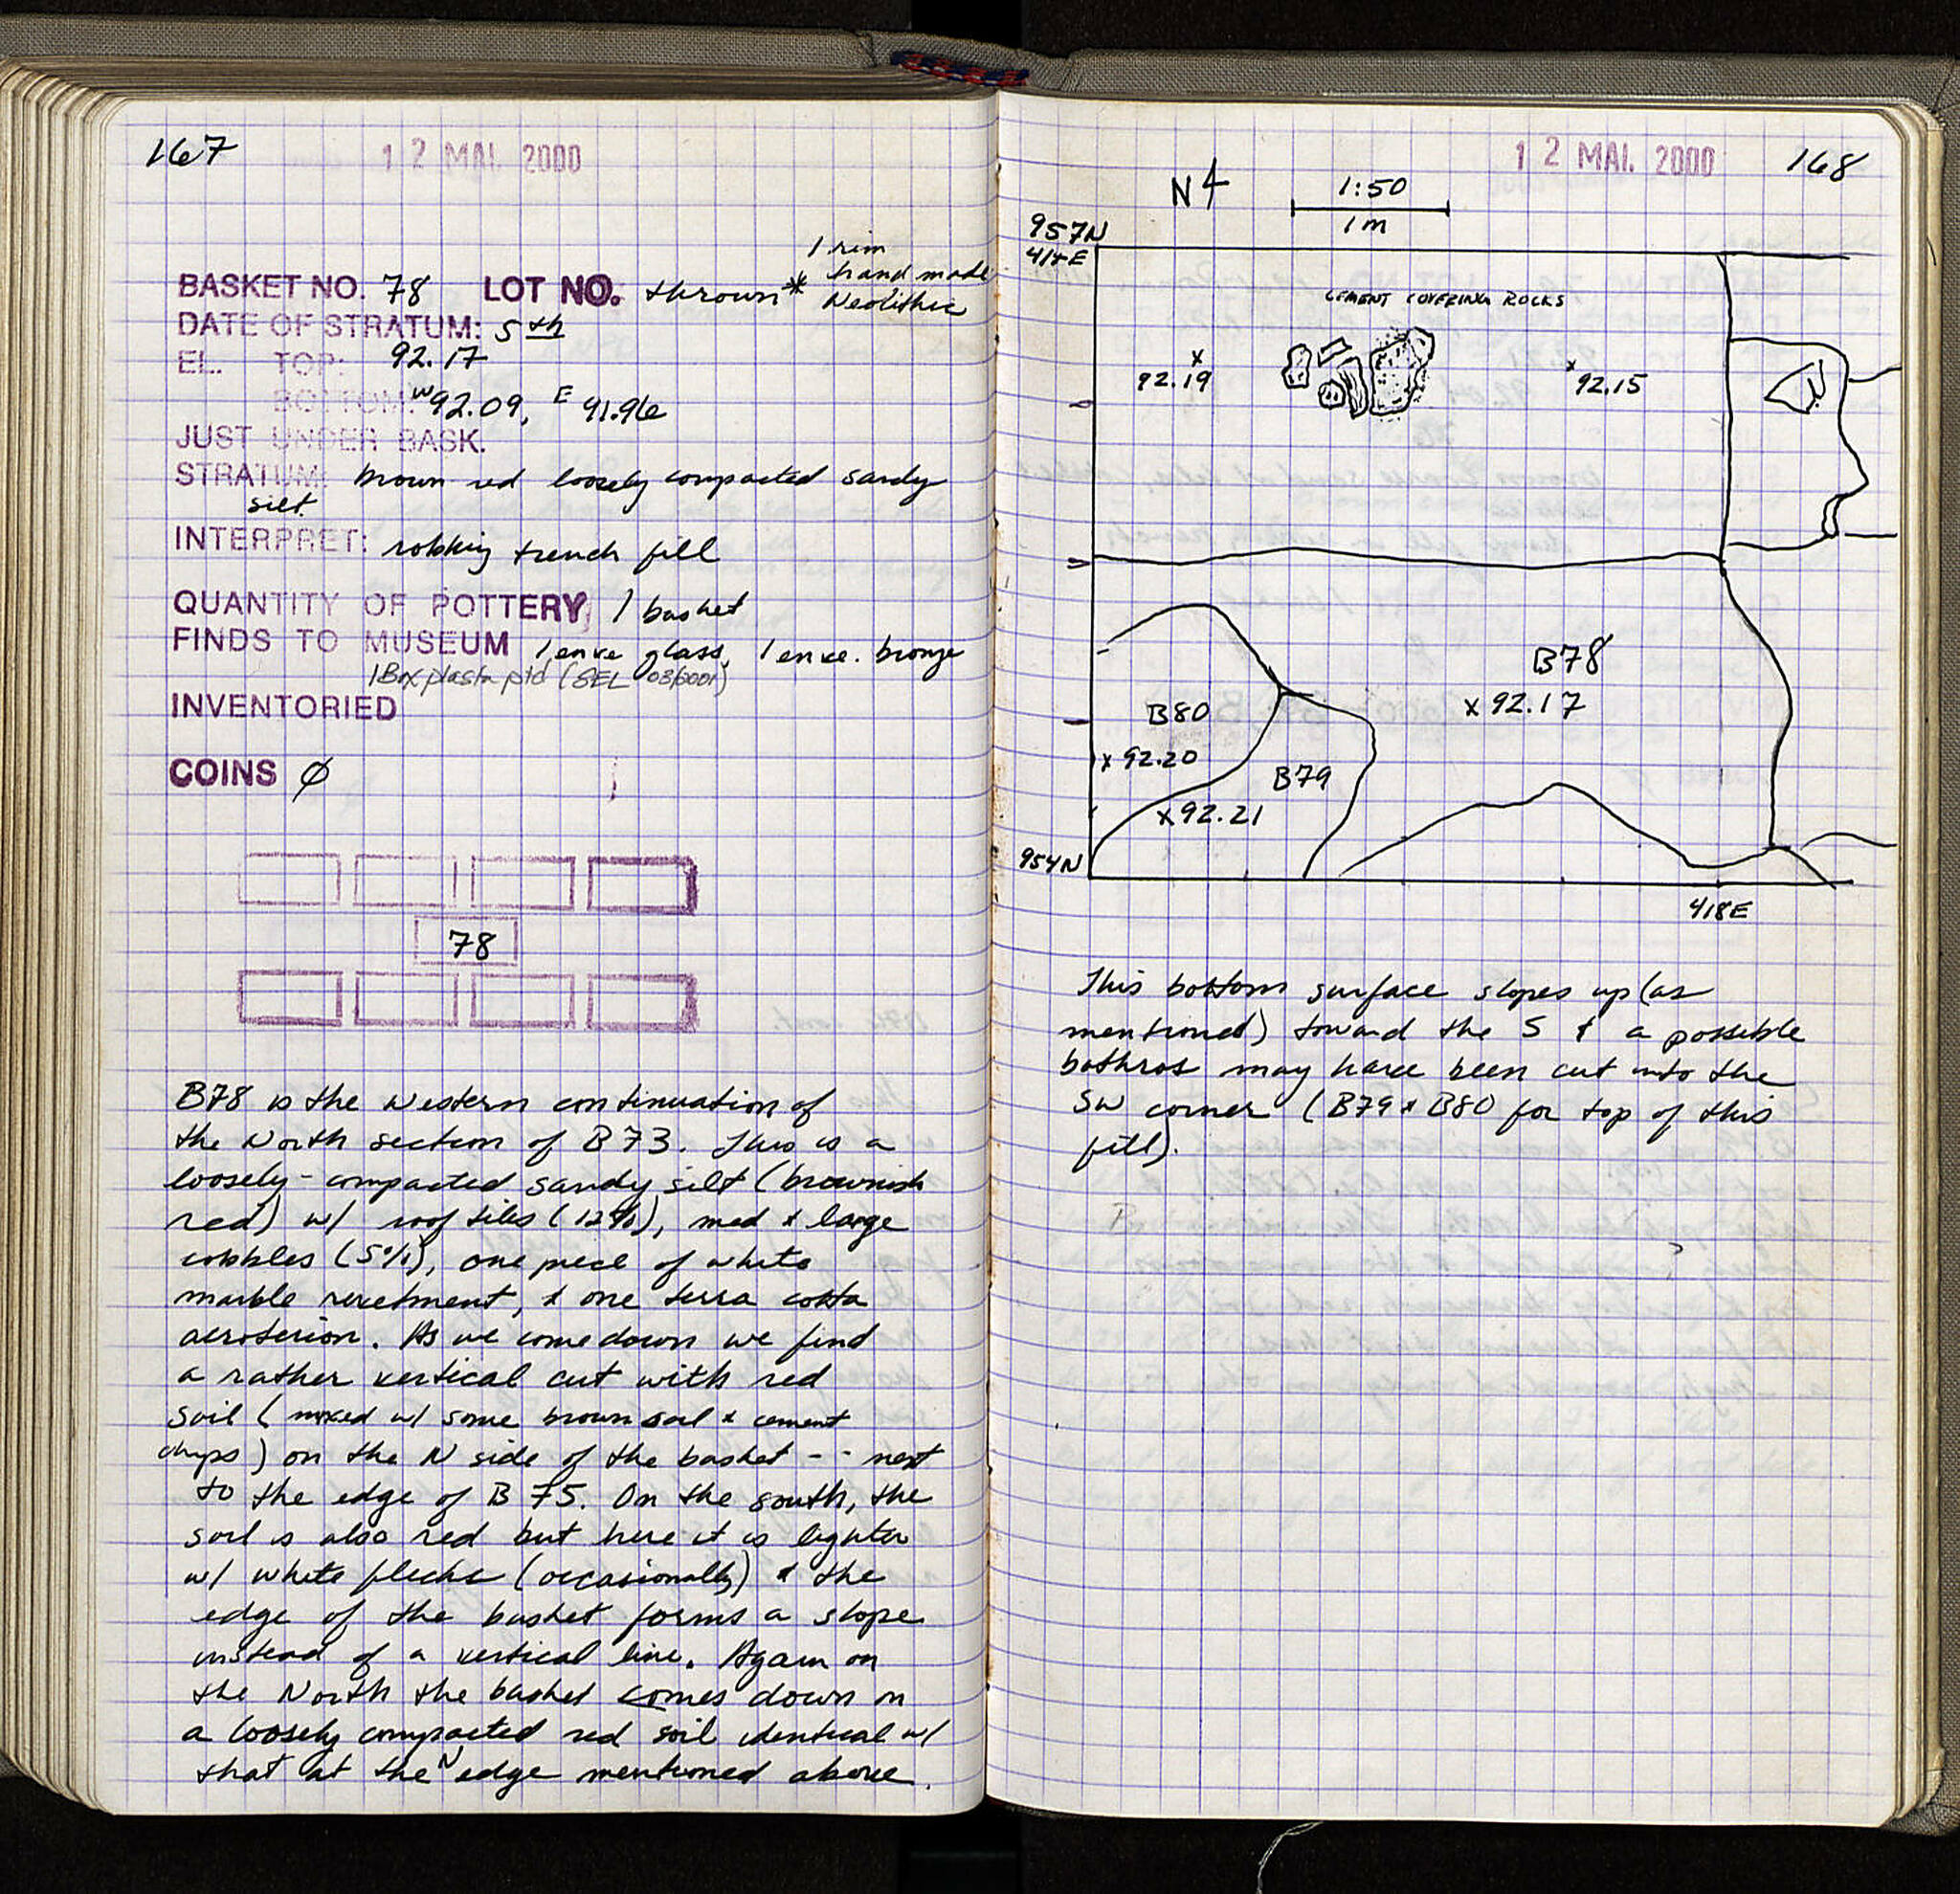 167
12 MAI. 2000
1 rim
hand made
Neolithic
BASKET NO. 78 LOT NO. thrown *
DATE OF STRATUM: 5th
EL. TOP: 92.17
BOTTOM: W 92.09, E 91.96
JUST UNDER BASK.
STRATUM: brown red loosely compacted sandy
silt.
INTERPRET: robbing trench fill
QUANTITY OF POTTERY 1 basket
FINDS TO MUSEUM 1 enve glass, 1 enve. bronze
1 Box plaster ptd (SEL 03/2001)
INVENTORIED
COINS Ø
78
B78 is the western continuation of
the North section of B73. This is a
loosely-compacted sandy silt (brownish
red) w/ roof tiles (12%), med & large
cobbles (5%), one piece of white
marble revetment, & one terra cotta
acroterion. As we come down we find
a rather vertical cut with red
soil (mixed w/ some brown soil & cement
chips) on the N side of the basket -- next
to the edge of B 75. On the south, the
soil is also red but here it is lighter
w/ white flecks (occasionally) & the
edge of the basket forms a slope
instead of a vertical line. Again on
the North the basket comes down on
a loosely compacted red soil identical w/
that at the N edge mentioned above.
12 MAI. 2000
168
N
1:50
1 m
957N
414E
CEMENT COVERING ROCKS
x
92.19
x 92.15
B78
x 92.17
B80
x 92.20
B79
x 92.21
954N
418E
This bottom surface slopes up (as
mentioned) toward the S & a possible
bothros may have been cut into the
SW corner (B79 & B80 for top of this
fill).